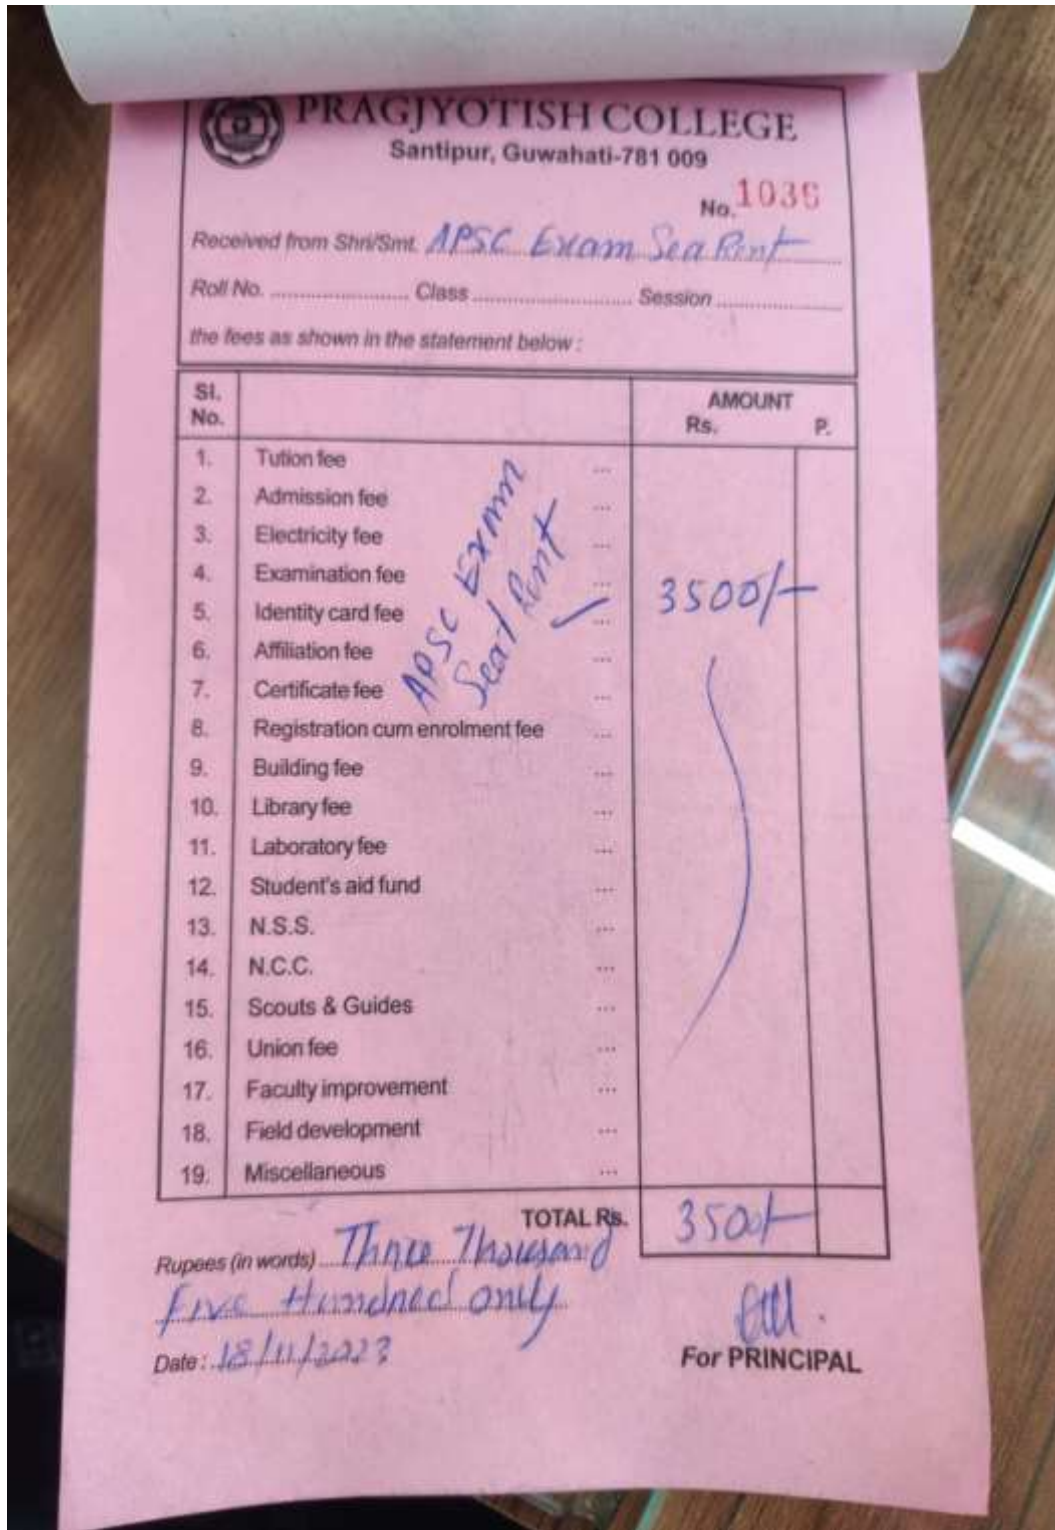 PRAGJYOTISH COLLEGE
Santipur, Guwahati-781 009
No. 1036
Received from Shri/Smt. APSC Exam Sea Rent
Roll No. .................... Class .................... Session ....................
the fees as shown in the statement below :
Sl. No. AMOUNT
Rs. P.
1. Tution fee ...
2. Admission fee ...
3. Electricity fee ...
4. Examination fee ...
5. Identity card fee ...
6. Affiliation fee ...
7. Certificate fee ...
8. Registration cum enrolment fee ...
9. Building fee ...
10. Library fee ...
11. Laboratory fee ...
12. Student's aid fund ...
13. N.S.S. ...
14. N.C.C. ...
15. Scouts & Guides ...
16. Union fee ...
17. Faculty improvement ...
18. Field development ...
19. Miscellaneous ...
APSC Exam
Seat Rent
3500/-
TOTAL Rs. 3500/-
Rupees (in words) Three Thousand
Five Hundred only
Date : 18/11/2023
For PRINCIPAL